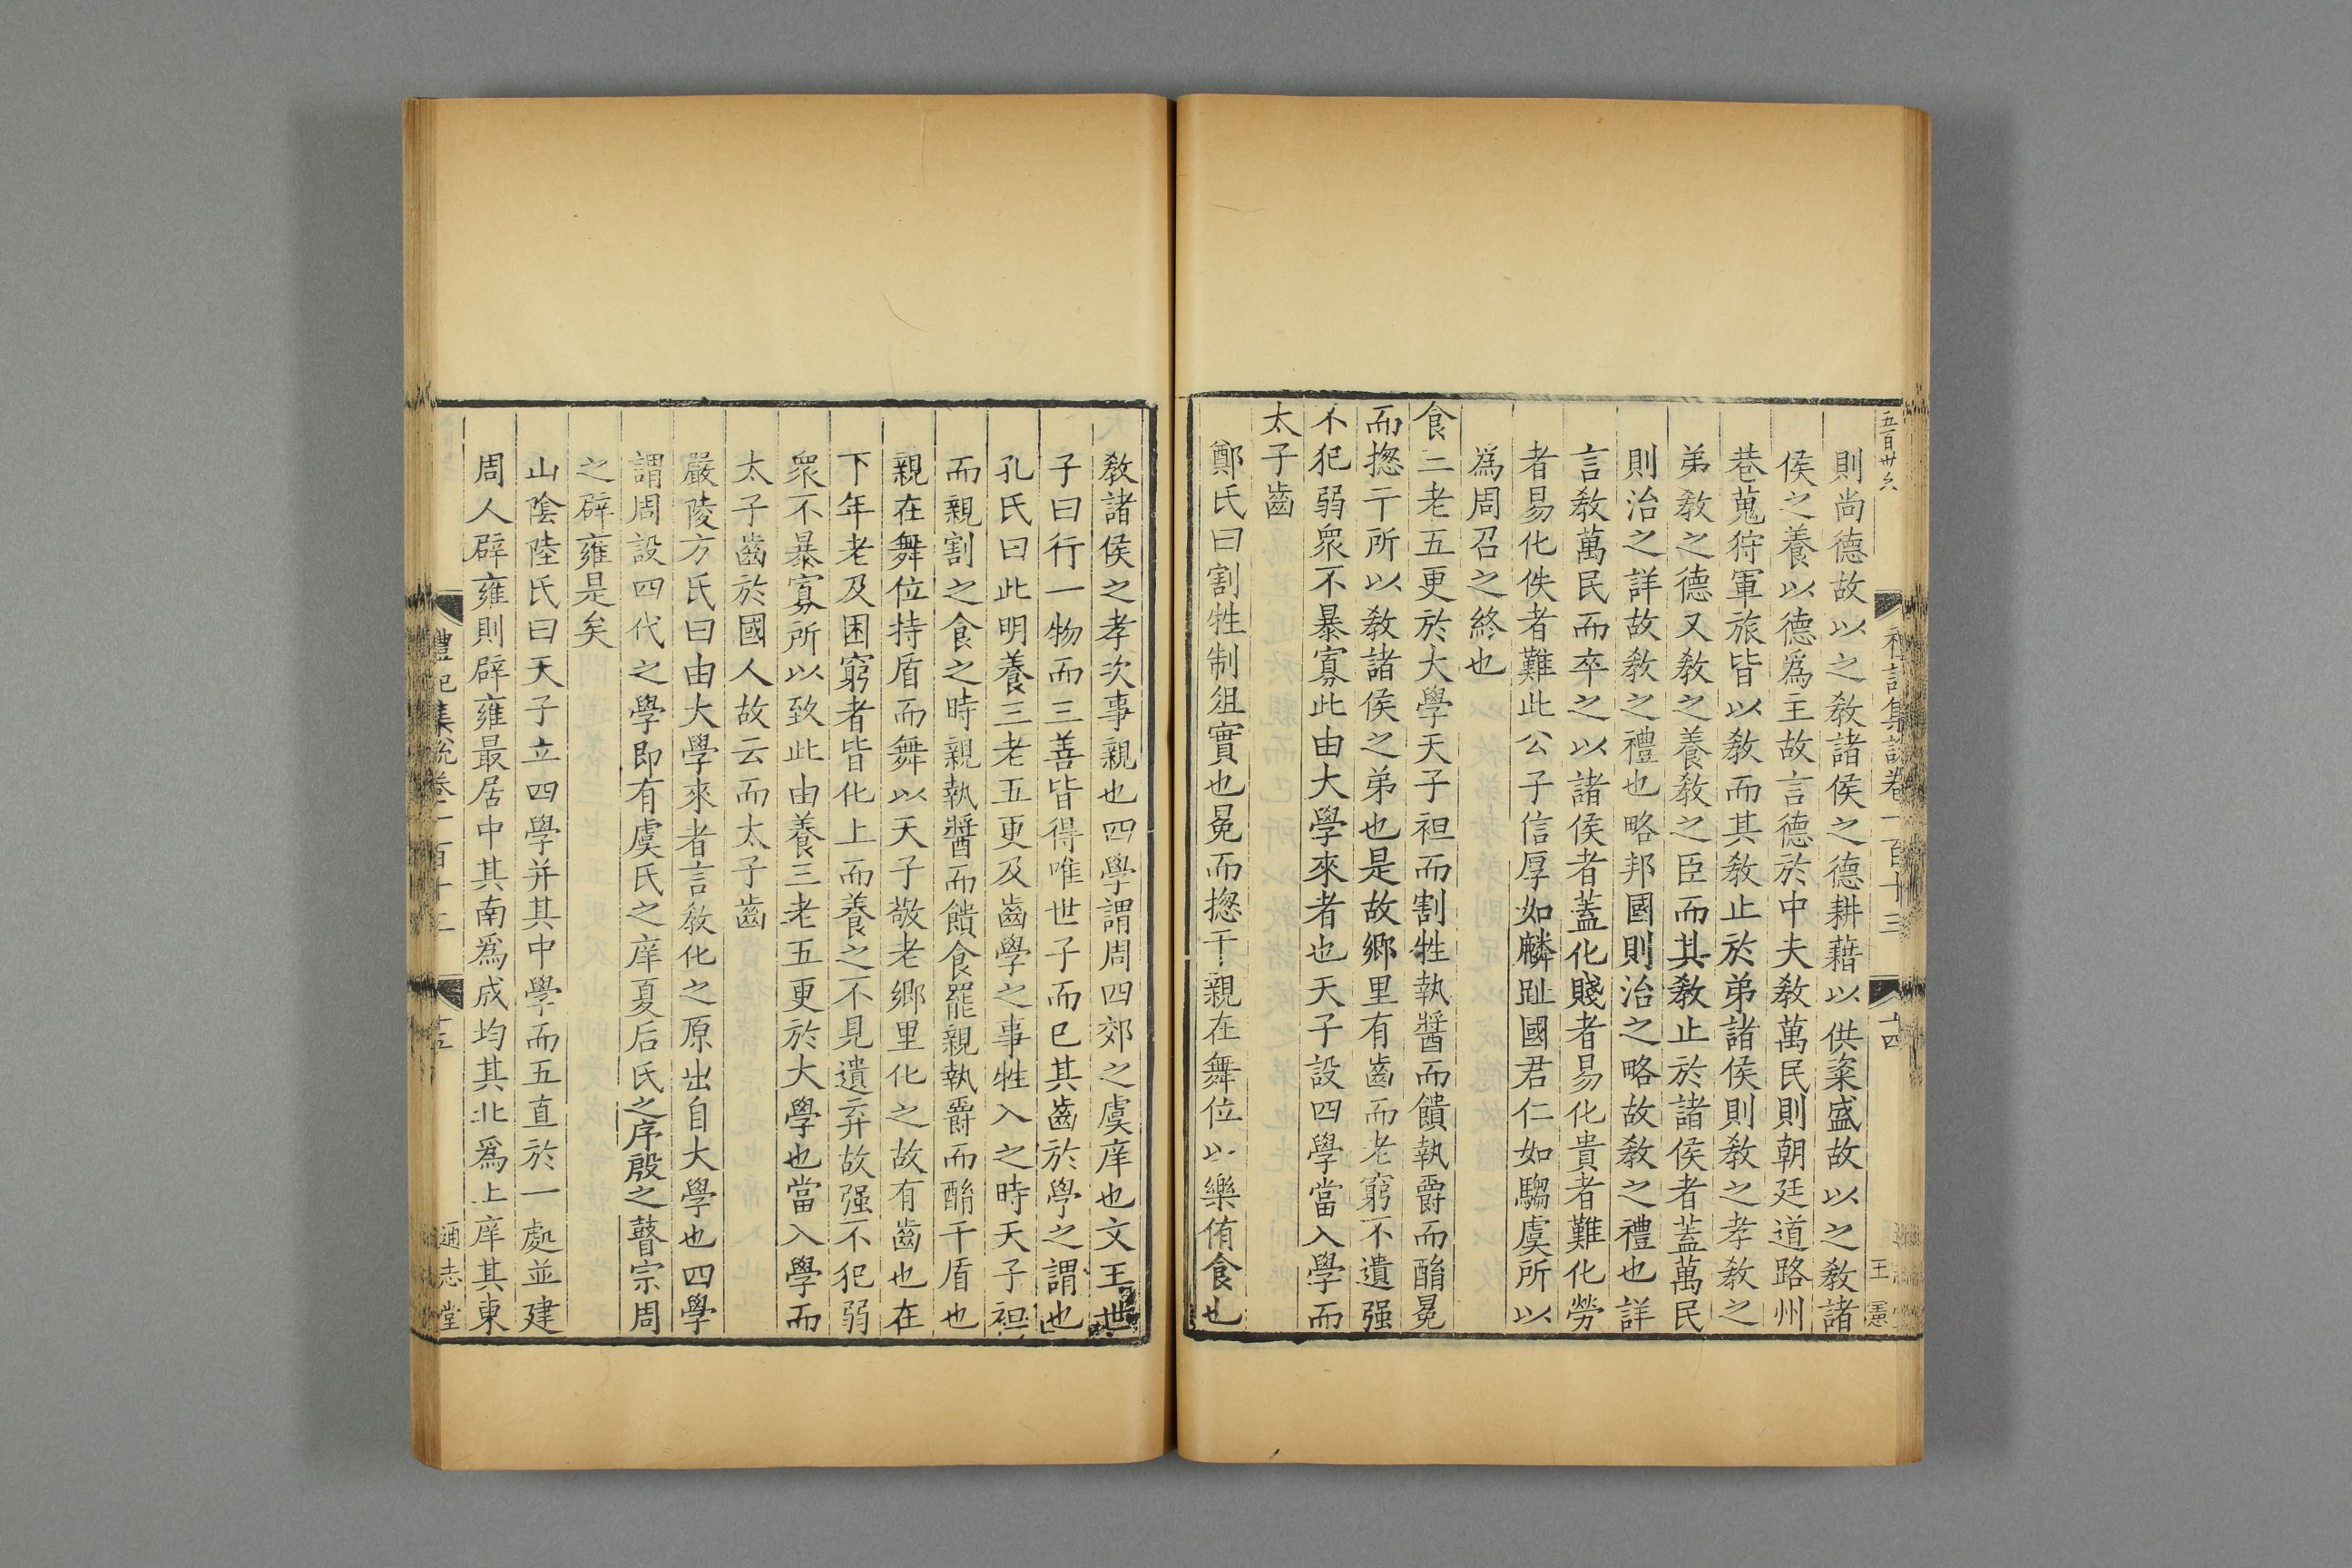 五百卅六
禮記集說卷一百十三
十四
王
則尚德故以之敎諸侯之德耕藉以供粢盛故以之敎諸
侯之養以德爲主故言德於中夫敎萬民則朝廷道路州
巷蒐狩軍旅皆以敎而其敎止於弟諸侯則敎之孝敎之
弟敎之德又敎之養敎之臣而其敎止於諸侯者蓋萬民
則治之詳故敎之禮也略邦國則治之略故敎之禮也詳
言敎萬民而卒之以諸侯者蓋化賤者易化貴者難化勞
者易化佚者難此公子信厚如麟趾國君仁如騶虞所以
爲周召之終也
食三老五更於大學天子袒而割牲執醬而饋執爵而酳冕
而揔干所以敎諸侯之弟也是故鄉里有齒而老窮不遺强
不犯弱衆不暴寡此由大學來者也天子設四學當入學而
太子齒
鄭氏曰割牲制俎實也冕而揔干親在舞位以樂侑食也
敎諸侯之孝次事親也四學謂周四郊之虞庠也文王世
子曰行一物而三善皆得唯世子而已其齒於學之謂也
孔氏曰此明養三老五更及齒學之事牲入之時天子袒
而親割之食之時親執醬而饋食罷親執爵而酳干盾也
親在舞位持盾而舞以天子敬老鄉里化之故有齒也在
下年老及困窮者皆化上而養之不見遺弃故强不犯弱
衆不暴寡所以致此由養三老五更於大學也當入學而
太子齒於國人故云而太子齒
嚴陵方氏曰由大學來者言敎化之原出自大學也四學
謂周設四代之學即有虞氏之庠夏后氏之序殷之瞽宗周
之辟雍是矣
山陰陸氏曰天子立四學并其中學而五直於一處並建
周人辟雍則辟雍最居中其南爲成均其北爲上庠其東
禮記集說卷一百十三
通志堂